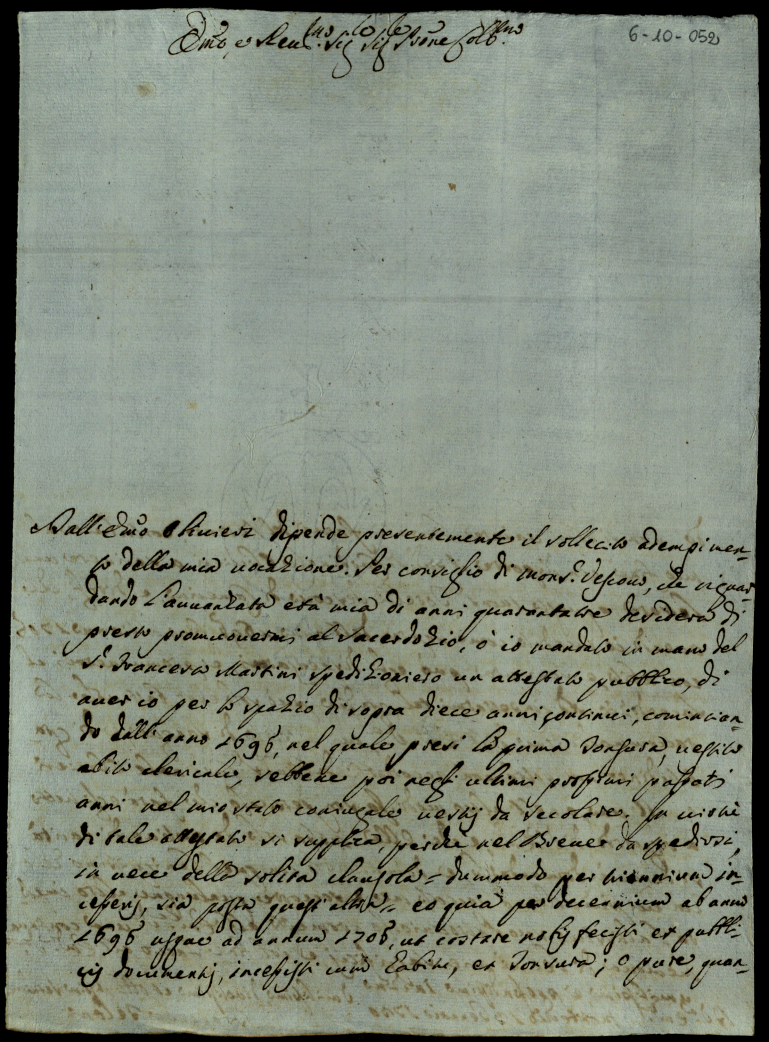 Em̃o, e Rev.mo Sig.r Sig.r Pr̃one Col.mo
6-10-052
Dall'Em̃o Olivieri dipende presentemente il sollecito adempimen-
to della mia vocazione. Per consiglio di mons.r Vescovo, che riguar-
dando l'avanzata età mia di anni quarantatre desidera di
presto promuovermi al sacerdozio, ò io mandato in mano del
S.r Francesco Martini spedizioniero un attestato pubblico, di
aver io per lo spazio di sopra diece anni continui, comincian-
do dall'anno 1696, nel quale presi la prima Tonsura, vestito
abito clericale, sebbene poi negli ultimi prossimi passati
anni nel mio stato coniugale vestij da secolare. In
di tale attestato si supplica, perche nel Breve da spedirsi,
in vece della solita clausola = dummodo per triennium in-
cesserij, sia posta quest'altra = eo quia per decennium ab anno
1696 usque ad annum 1706, ut costare nobis fecisti ex pubbli-
cis documentis, incessisti cum habitu, et Tonsura; o pure, quan-